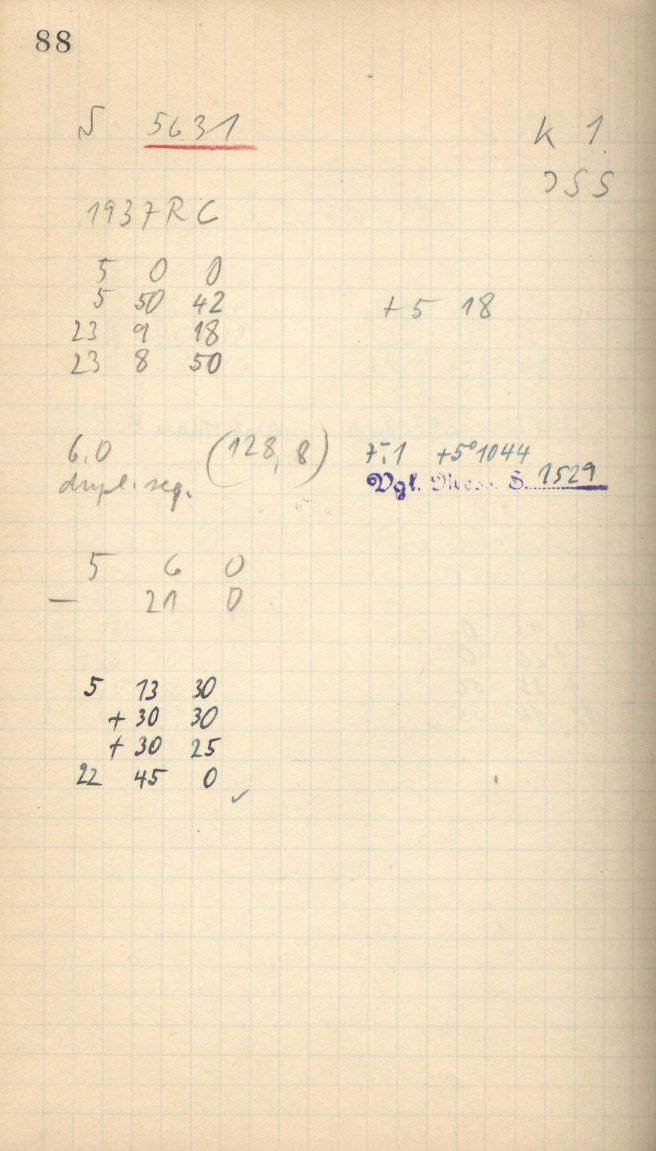 88
S 5631 K 1.
JSS
1937 R C
5 0 0
5 50 42 +5 18
23 9 18
23 8 50
6.0 (128, 8) 7.1 +5° 1044
dupl. seq. Vgl. Mess. S. 1529
5 6 0
— 21 0
5 13 30
+ 30 30
+ 30 25
22 45 0 ✓